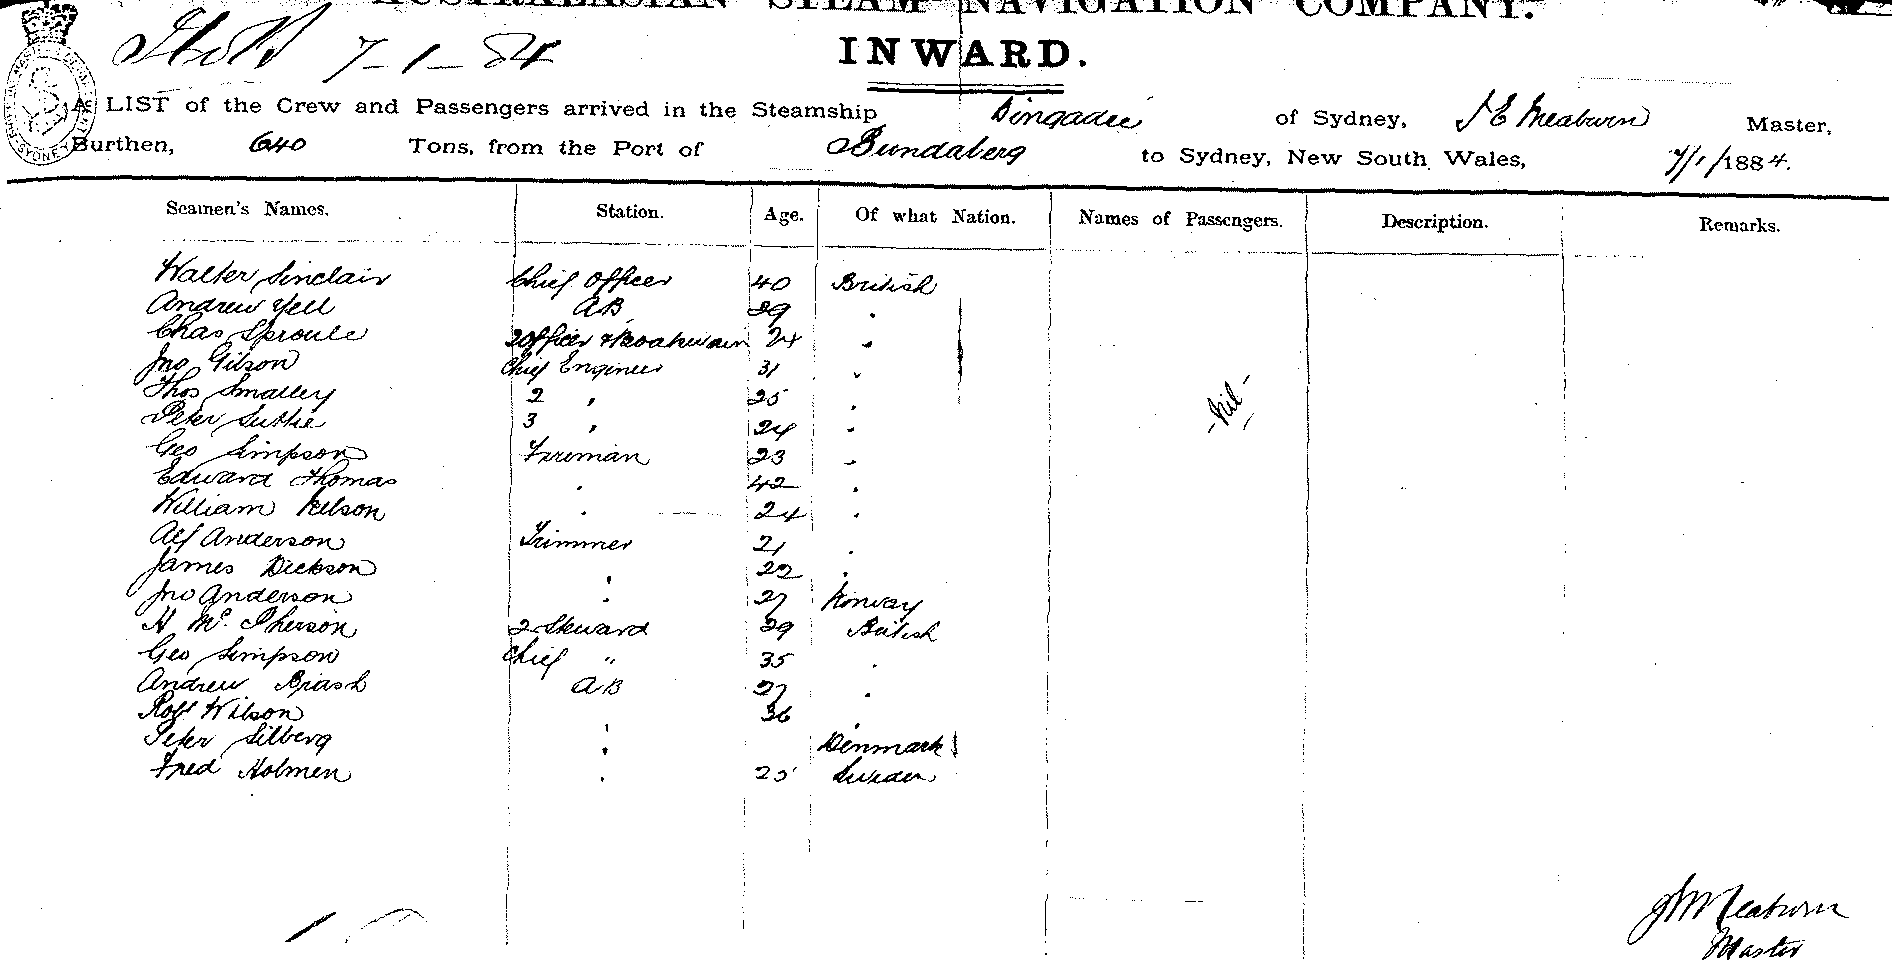 AUSTRALASIAN STEAM NAVIGATION COMPANY.
7-1-84
INWARD.
A LIST of the Crew and Passengers arrived in the Steamship Dingadee of Sydney, J E Meaburn Master,
Burthen, 640 Tons, from the Port of Bundaberg to Sydney, New South Wales, 7/1/1884.
Seamen's Names. Station. Age. Of what Nation. Names of Passengers. Description. Remarks.
Walter Sinclair Chief Officer 40 British
Andrew Yell AB 29 "
Chas Sproule 2 Officer & Boatswain 24 "
Jno Gilson Chief Engineer 31 "
Thos Smalley 2 " 25 "
Peter Suttie 3 " 24 " -Nil-
Geo Simpson Fireman 23 "
Edward Thomas " 42 "
William Nelson " 24 "
Alf Anderson Trimmer 21 "
James Dickson " 22 "
Jno Anderson " 27 Norway
H McPherson 2 Steward 29 British
Geo Simpson Chief " 35 "
Andrew Brash AB 27 "
Robt Wilson " 36 "
Peter Silberg " Denmark
Fred Holmen " 25 Sweden
J Meaburn
Master